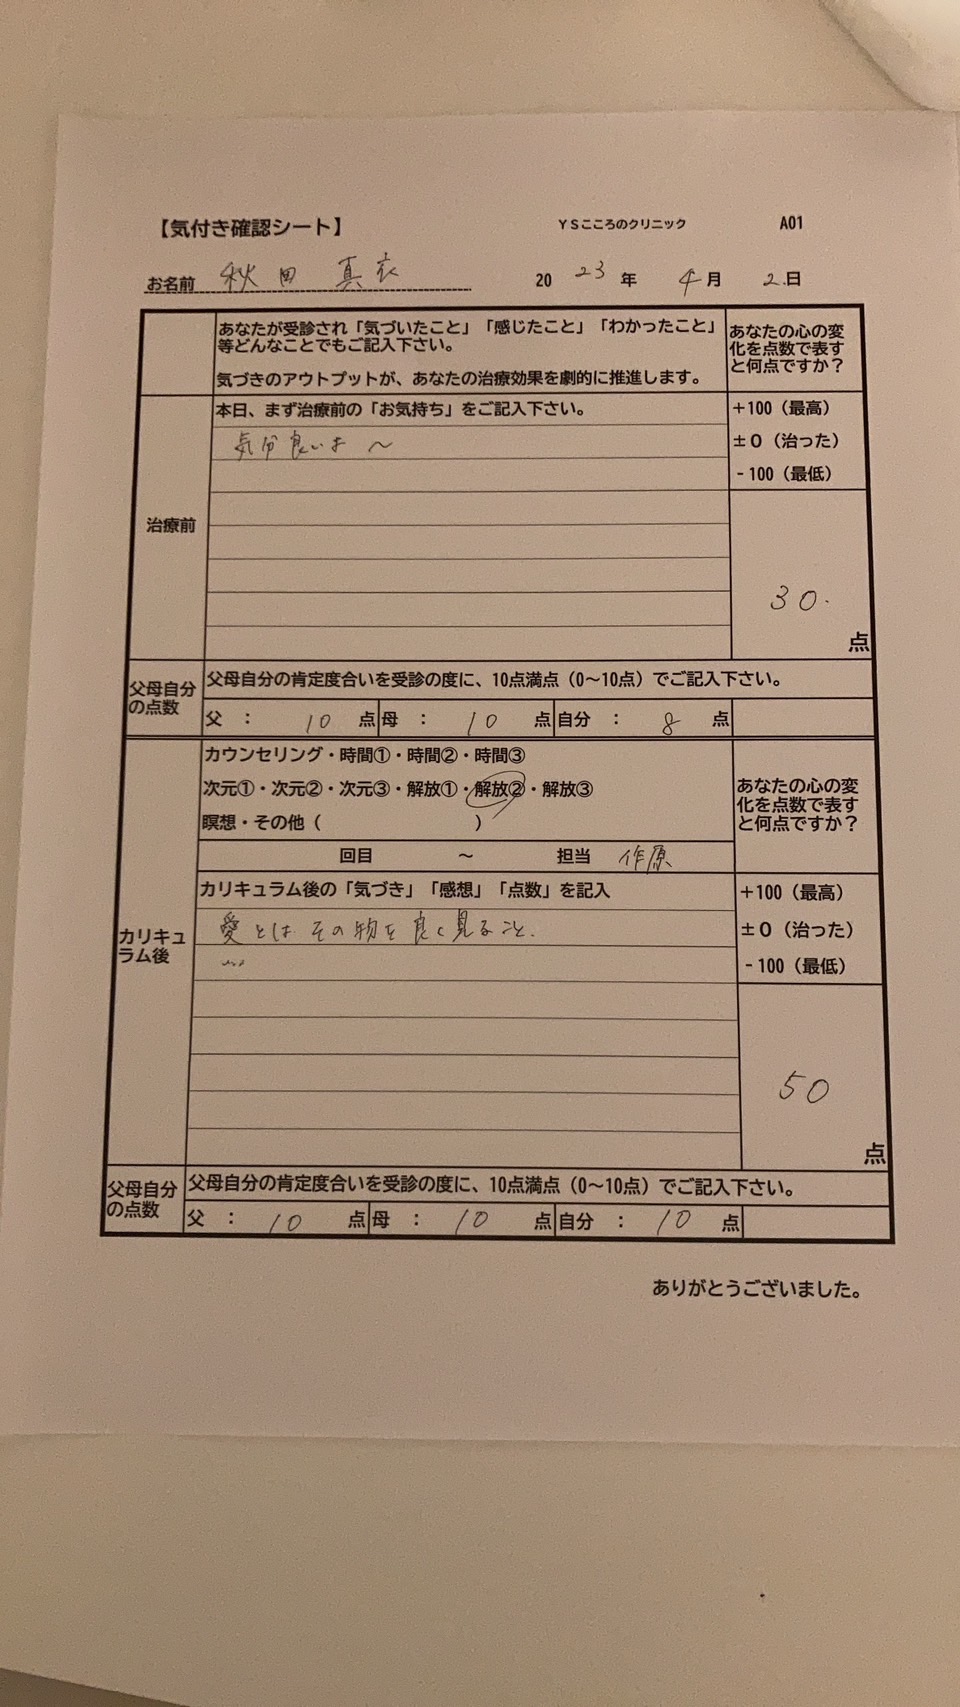 【気付き確認シート】 YSこころのクリニック A01
お名前 秋田 真衣 2023年 4月 2日
あなたが受診され「気づいたこと」「感じたこと」「わかったこと」
等どんなことでもご記入下さい。
気づきのアウトプットが、あなたの治療効果を劇的に推進します。
あなたの心の変
化を点数で表す
と何点ですか？
治療前
本日、まず治療前の「お気持ち」をご記入下さい。
気分良いま〜
+100（最高）
±0（治った）
-100（最低）
30.
点
父母自分
の点数
父母自分の肯定度合いを受診の度に、10点満点（0〜10点）でご記入下さい。
父 ： 10 点 母 ： 10 点 自分 ： 8 点
カリキュ
ラム後
カウンセリング・時間①・時間②・時間③
次元①・次元②・次元③・解放①・解放②・解放③
瞑想・その他（ ）
あなたの心の変
化を点数で表す
と何点ですか？
回目 〜 担当 作原
カリキュラム後の「気づき」「感想」「点数」を記入
愛とはその物を良く見ること.
+100（最高）
±0（治った）
-100（最低）
50
点
父母自分
の点数
父母自分の肯定度合いを受診の度に、10点満点（0〜10点）でご記入下さい。
父 ： 10 点 母 ： 10 点 自分 ： 10 点
ありがとうございました。